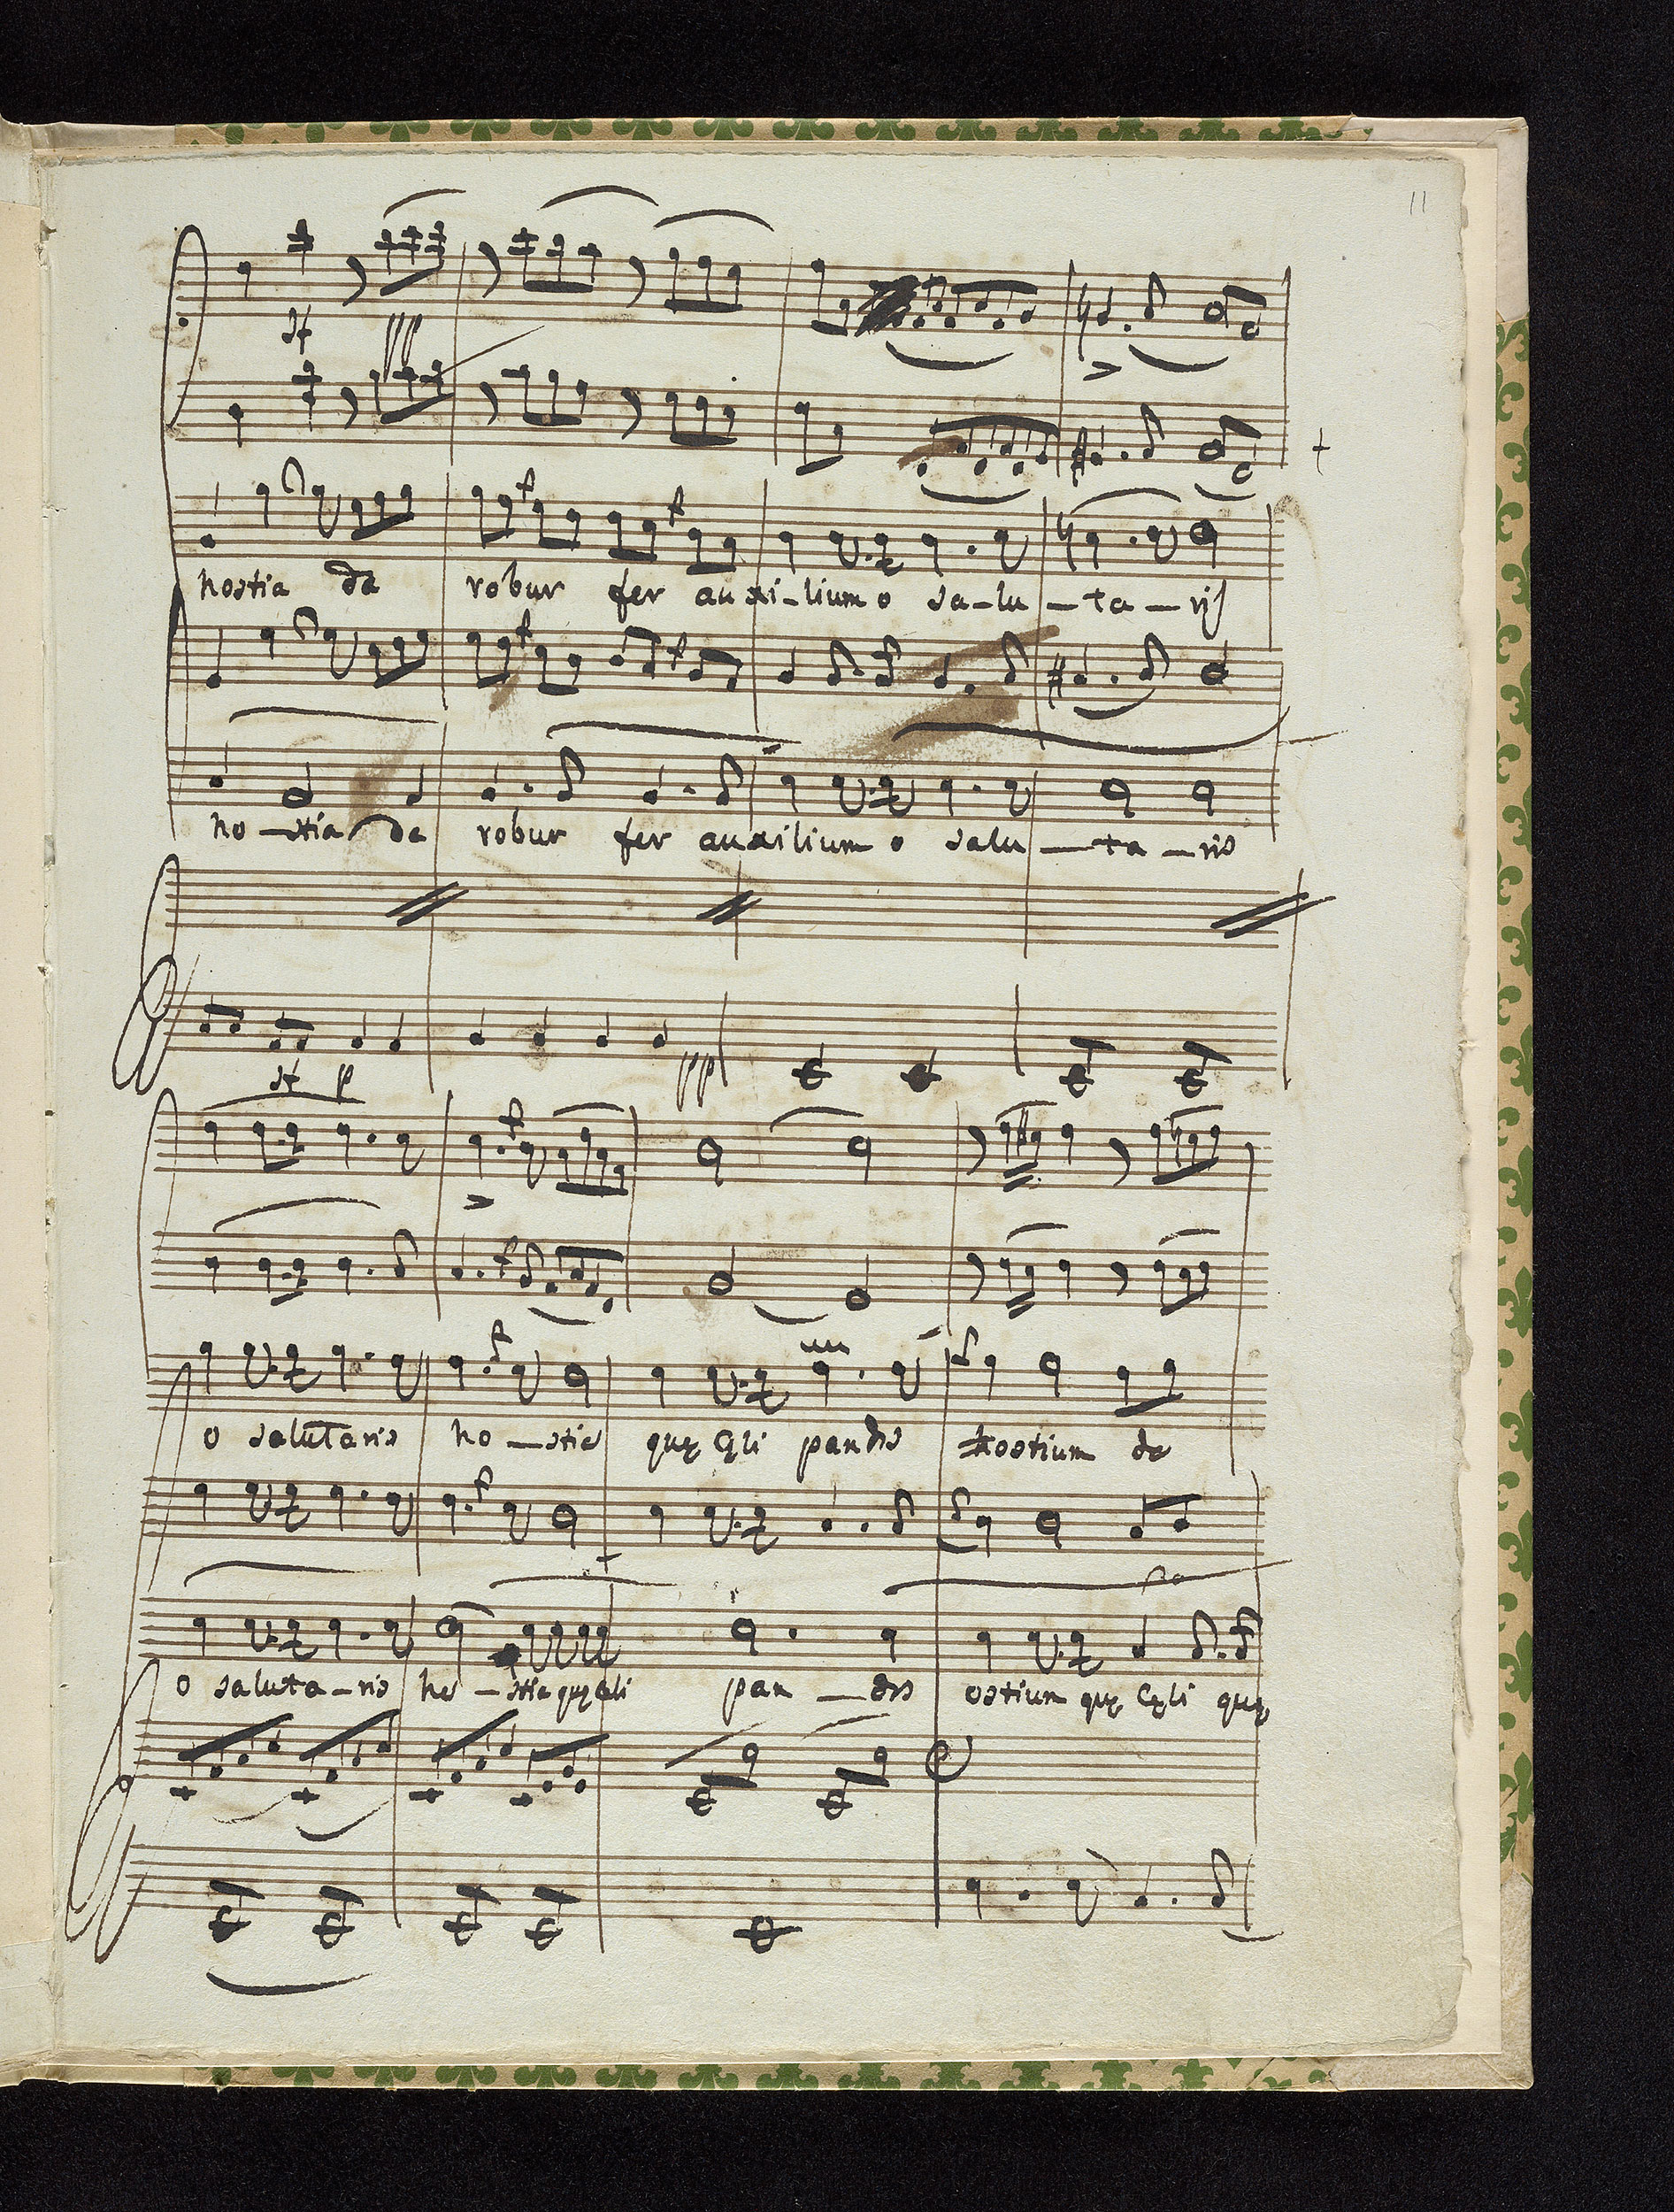 11
sf pp
hostia da robur fer auxi-lium o sa-lu-ta-ris
ho-stia da robur fer auxilium o salu-ta-ris
sf p pp
o salutaris ho-stia quę cęli pandis hostium da
o saluta-ris ho-stia quę cęli pan-dis ostium quę cęli quę